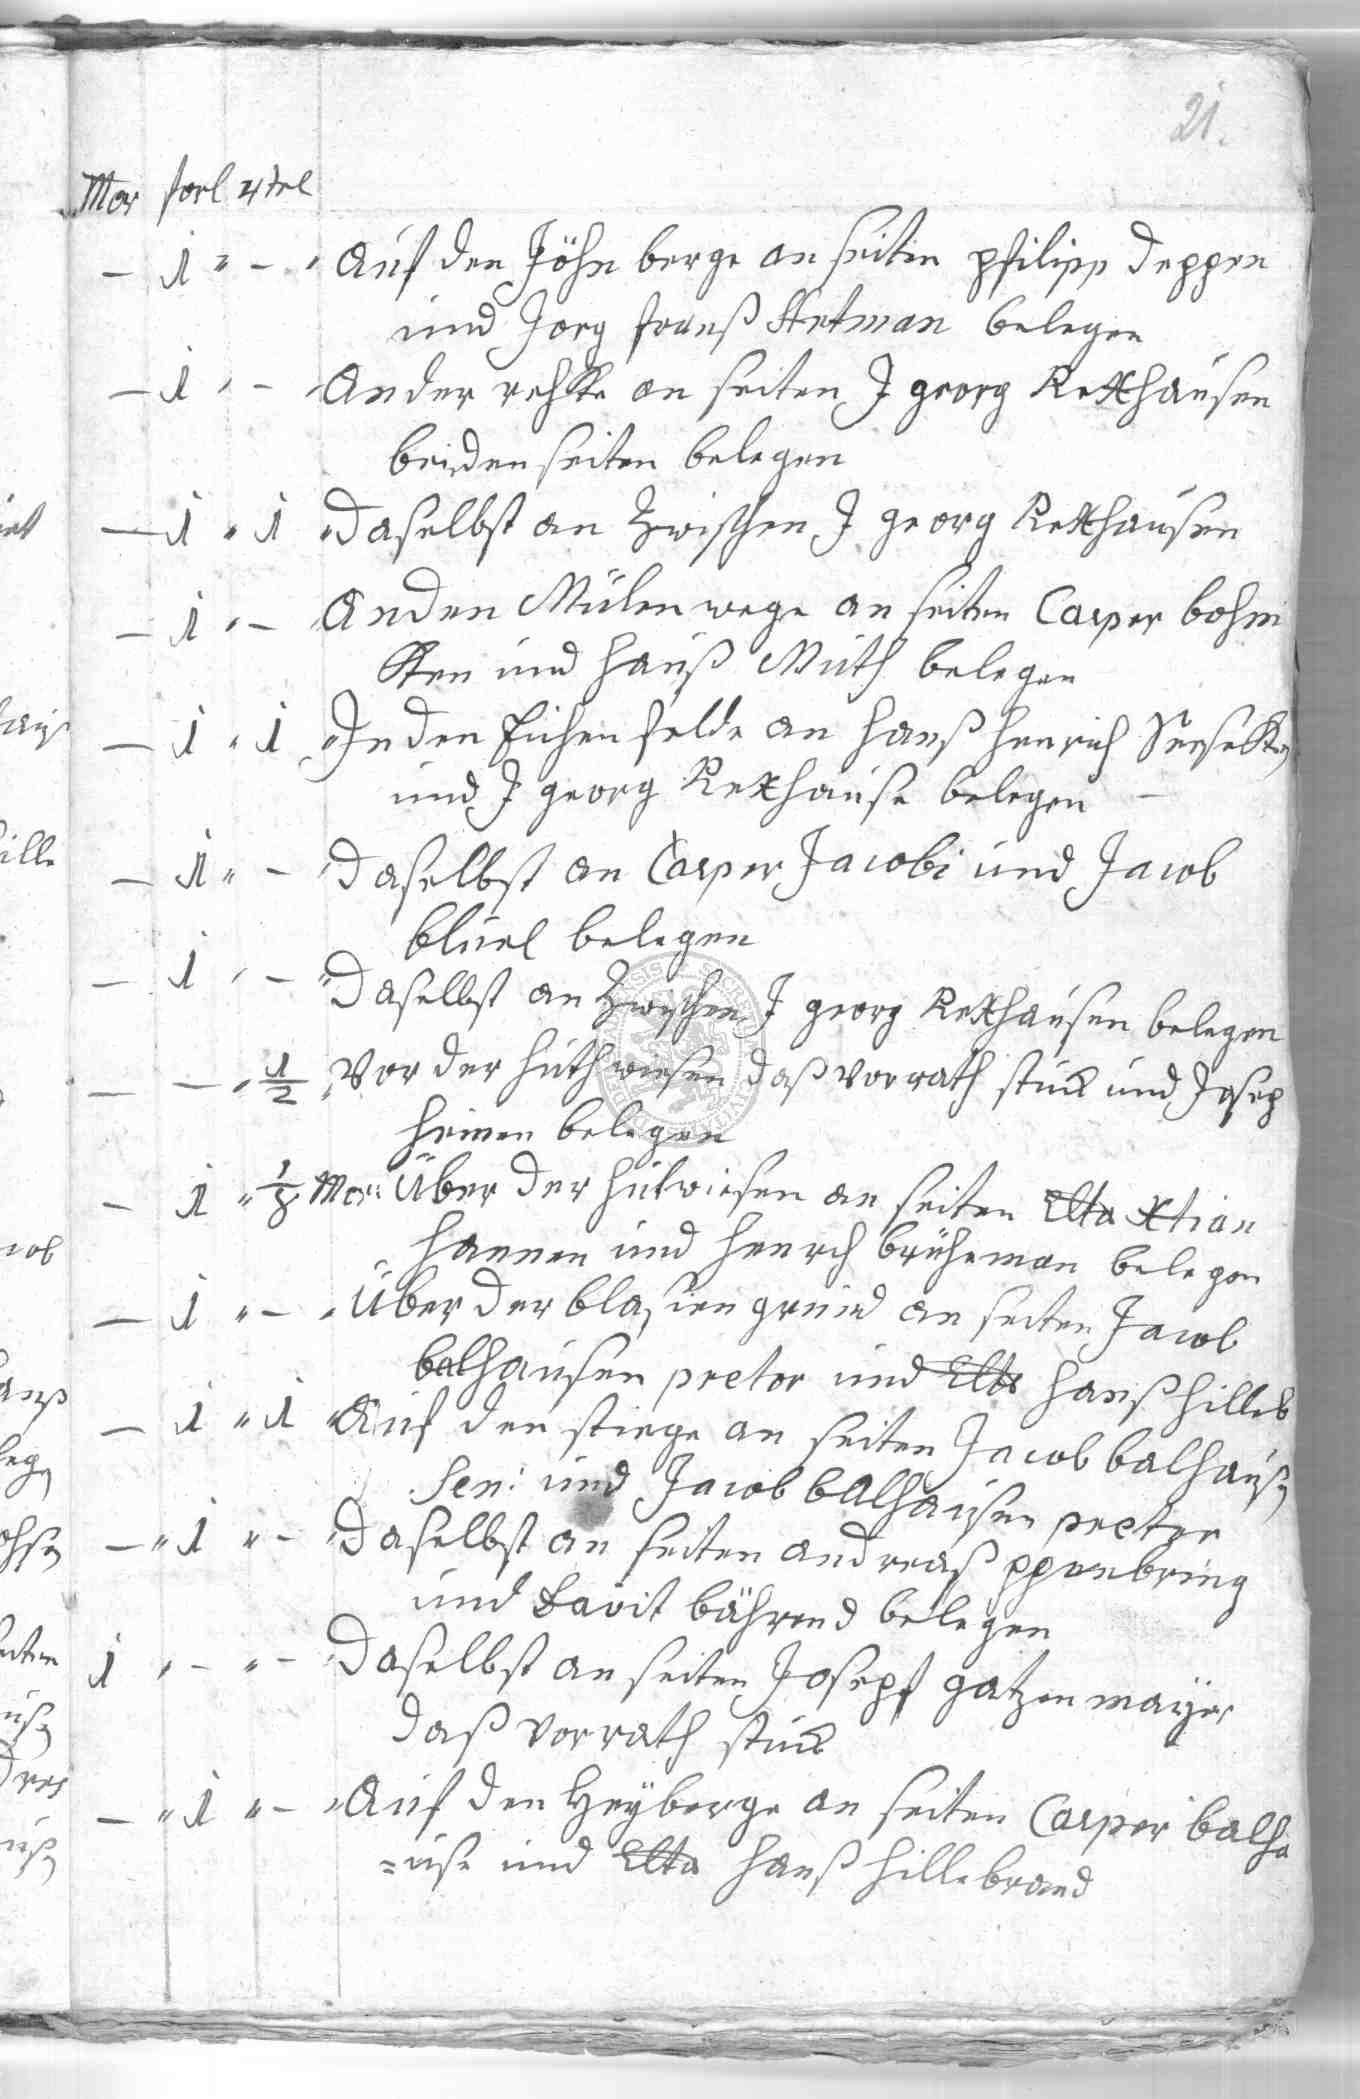 21.
Mor forl 4tel
– 1 " – " Auf den Jöhn berge an seitin philipp deppen
und Jorg franß Artman belegen
– 1 " – " An der rehcke an seiten J georg Rexhausen
beiden seiten belegen
– 1 " 1 " daselbst an Zwischen J georg Rexhausen
– 1 " – An den Mülen wege an seiten Casper bohm
cken und hanß Muth belegen
– 1 " 1 " In den Eichen felde an hanß henrich
und J georg Rexhause belegen –
– 1 " – " daselbst an Casper Jacobi und Jacob
blüel belegen
– 1 " – " Daselbst an Zwischen J georg Rexhausen belegen
– – " 1/2 " Vor der huth wiesen daß vorrath stück und Josep
heinen belegen
– 1 " 1/8 Mor: Über der hutwiesen an seiten Elta Xtian
hannen und henrch brüheman belegen
– 1 " – " Über der blasien grund an seiten Jacob
balhausen pretor und Elta hanß hilleb
– 1 " 1 " Auf den stiege an seiten Jacob balhauß
Sen: und Jacob balhausen pretor
– " 1 " – " daselbst an seiten andreaß ppenbring
und Davit bährend belegen
1 " – " – " Daselbst an seiten Joseph gatzen mayer
daß vorrath stück
– " 1 " – " Auf den Heyberge an seiten Casper balha
=use und Elta hanß hillebrand